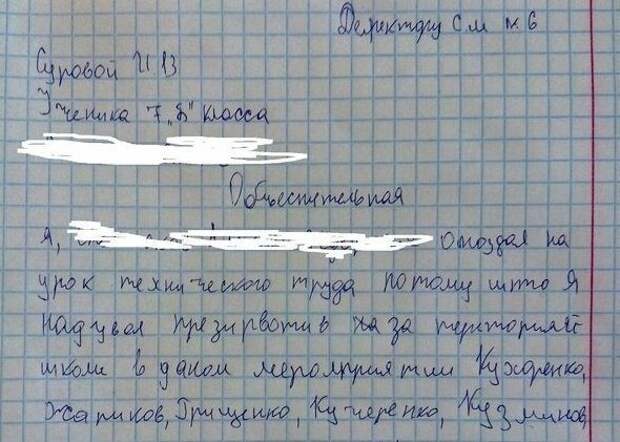 Деректору См № 6
Суровой И В
Ученика 7 „Б" класса
Объеснительная
Я, опоздал на
урок технического труда потому што я
надувал презирвотив за територией
школи в даном мероприятии Кухоренко,
Жариков, Грищенко, Кучеренко, Кузминов,